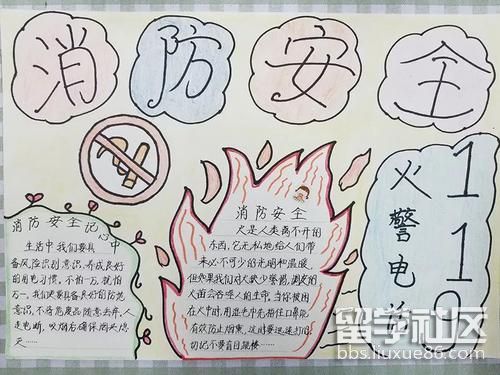 消防安全
消防安全记
心中
生活中我们要具
备风险识别意识,养成良好
的用电习惯,不怕一万,就怕
万一,我们更要具备良好的防范
意识,不将危废品随意丢弃,人
走电断,
灭……
消防安全
火是人类离不开的
东西,它无私地给人们带
来必不可少的光明和温暖,
但如果我们对火缺少警惕,调皮的
火苗会吞噬人的生命,当你被困
在火中时,用湿毛巾先捂住口鼻能
有效防止烟熏,这时要迅速拨打
切记不要盲目跳楼……
火警电话
119
留学社区
bbs.liuxue86.com